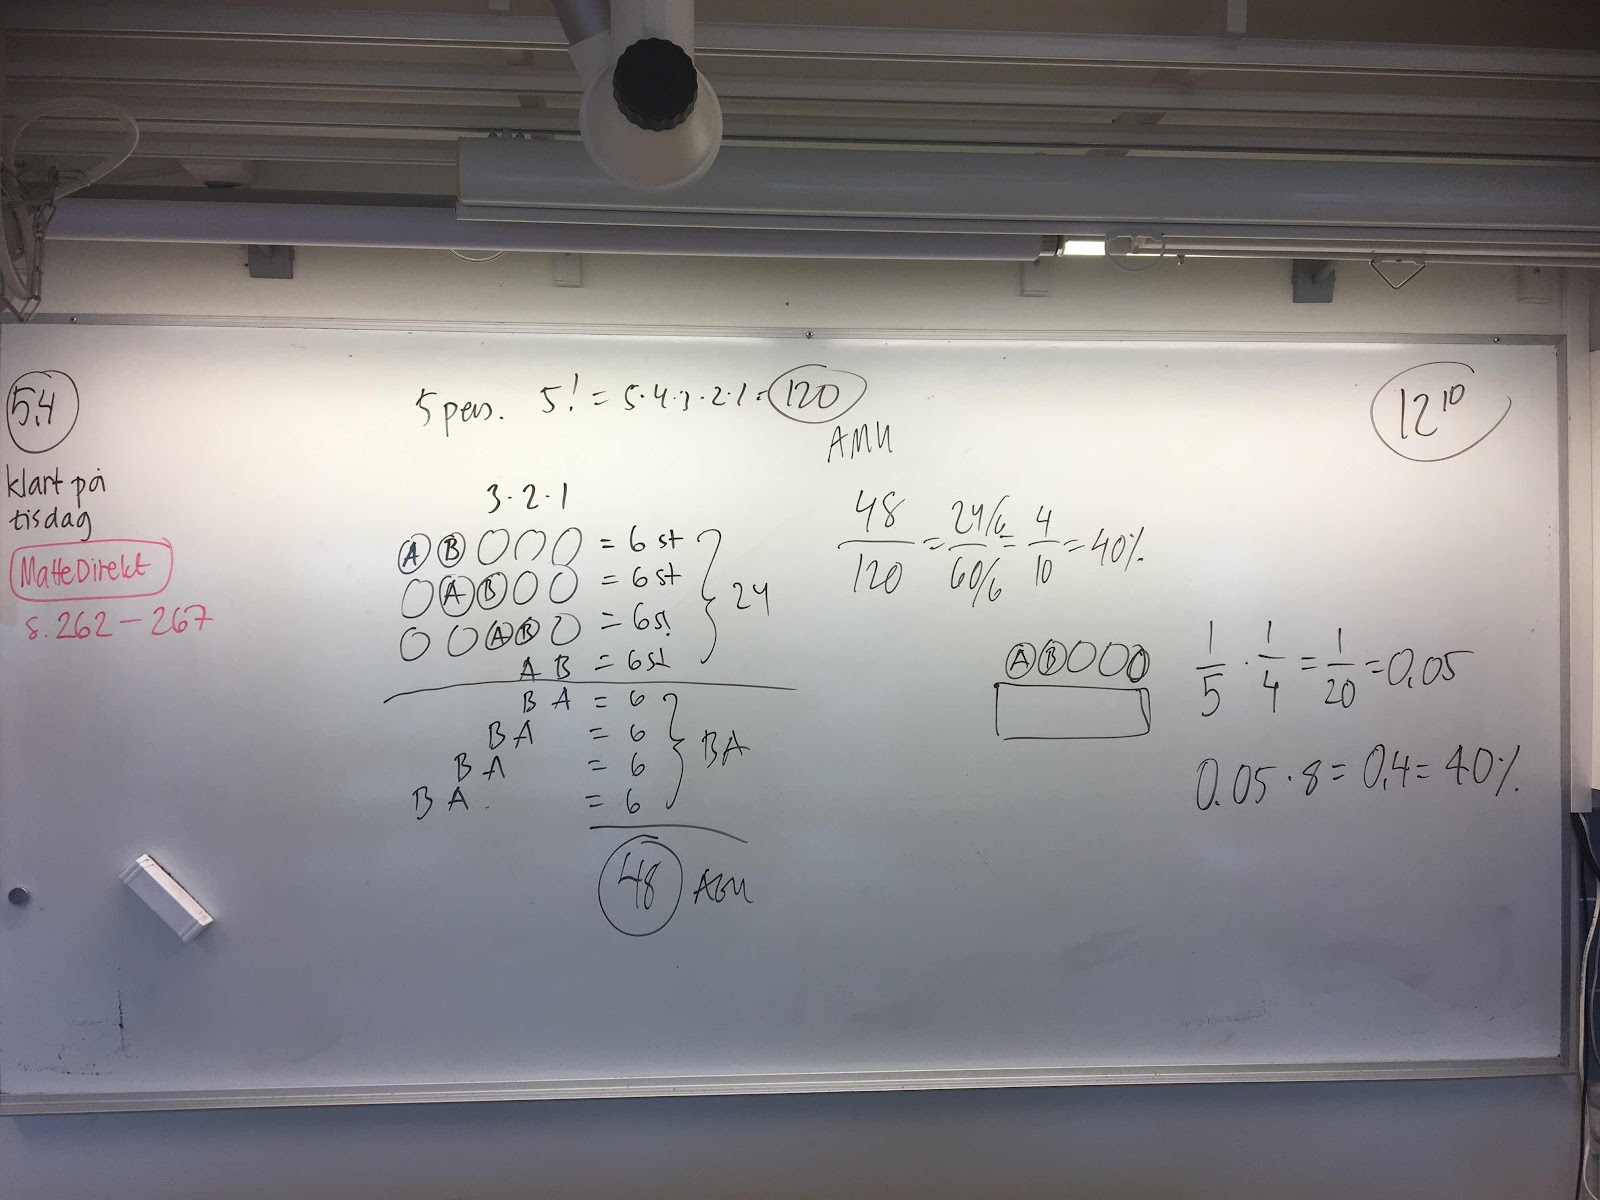 5.4
klart på
tisdag
MatteDirekt
s. 262 – 267
5 pers. 5! = 5·4·3·2·1 = 120
3·2·1
A B = 6 st
A B = 6 st
A B = 6 st
A B = 6 st
24
B A = 6
B A = 6
B A = 6
B A = 6
BA
48
48/120 = 24/6 / 60/6 = 4/10 = 40%
12¹⁰
A B
1/5 · 1/4 = 1/20 = 0,05
0.05 · 8 = 0,4 = 40%